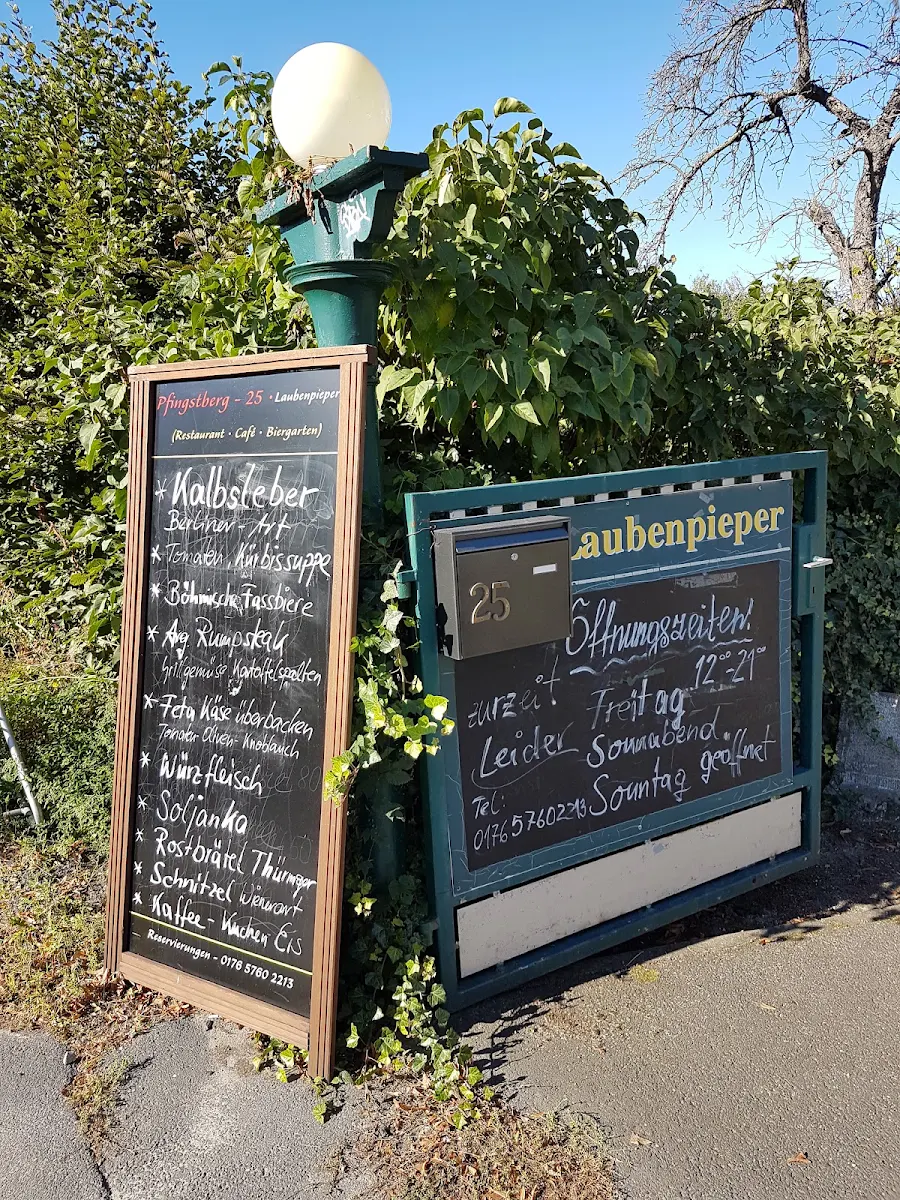 Pfingstberg - 25 · Laubenpieper
(Restaurant · Café · Biergarten)
* Kalbsleber
Berliner - Art
* Tomaten, Kürbissuppe
* Böhmische Fassbiere
* Arg Rumpsteak
Grillgemüse Kartoffelspalten
* Feta Käse überbacken
Tomaten-Oliven-Knoblauch
* Würzfleisch
* Soljanka
* Rostbrätel Thüringer
* Schnitzel Wienerart
* Kaffee - Kuchen Eis
Reservierungen - 0176 5760 2213
Laubenpieper
25
Öffnungszeiten!
zurzeit Freitag 12°°-21°°
Leider Sonnabend
Sonntag geöffnet
Tel:
0176 57602213